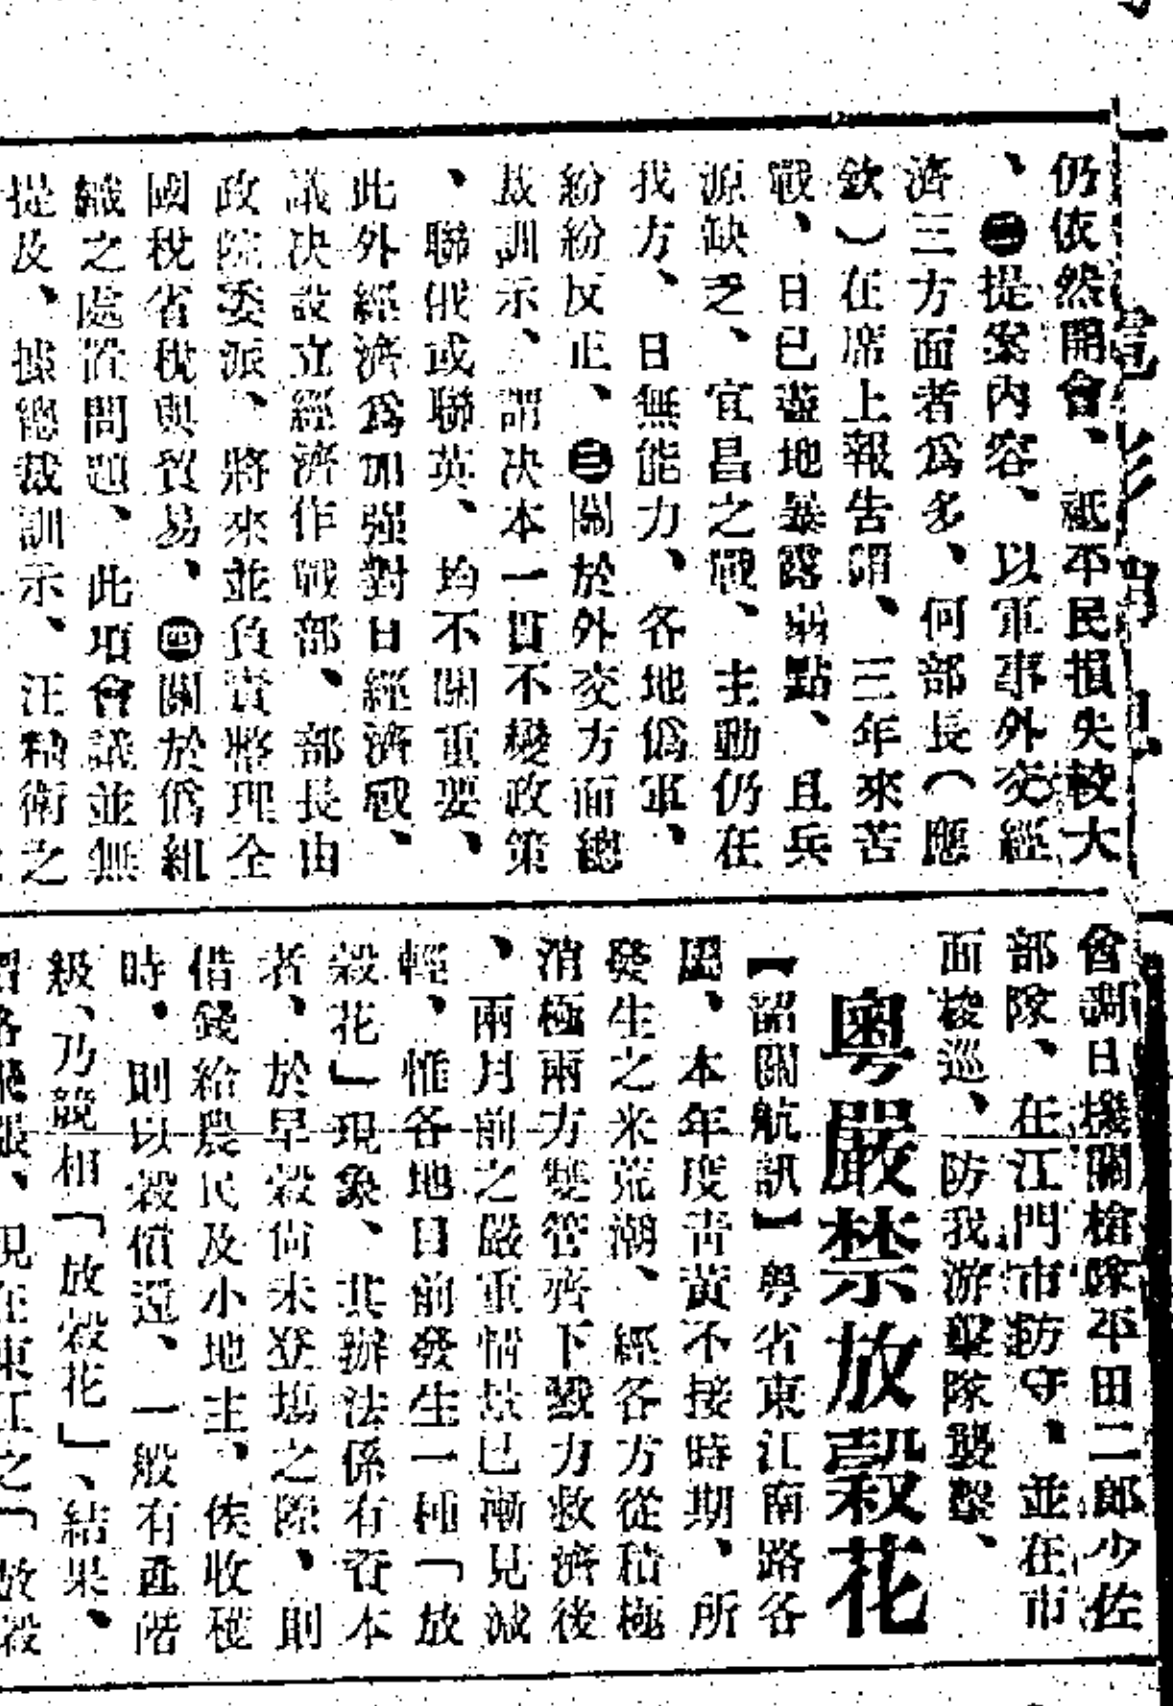 仍依然開會、祗平民損失較大
、㊁提案內容、以軍事外交經
濟三方面者爲多、何部長（應
欽）在席上報告謂、三年來苦
戰、日已盡地暴露弱點、且兵
源缺乏、宜昌之戰、主動仍在
我方、日無能力、各地僞軍、
紛紛反正、㊂關於外交方面總
裁訓示、謂决本一貫不變政策
、聯俄或聯英、均不關重要、
此外經濟爲加强對日經濟戰、
議决設立經濟作戰部、部長由
政院委派、將來並負責整理全
國稅省稅與貿易、㊃關於僞組
織之處置問題、此項會議並無
提及、據總裁訓示、汪精衛之
會調日機關槍隊平田二郎少佐
部隊、在江門市防守、並在市
面梭巡、防我游擊隊襲擊、
粵嚴禁放穀花
【韶關航訊】粵省東江南路各
屬、本年度靑黃不接時期、所
發生之米荒潮、經各方從積極
消極兩方雙管齊下戮力救濟後
、兩月前之嚴重情景已漸見減
輕、惟各地目前發生一種「放
穀花」現象、其辦法係有資本
者、於早穀尙未登塲之際、則
借錢給農民及小地主、俟收穫
時、則以穀償還、一般有產階
級、乃競相「放穀花」、結果、
現在東江之「放穀